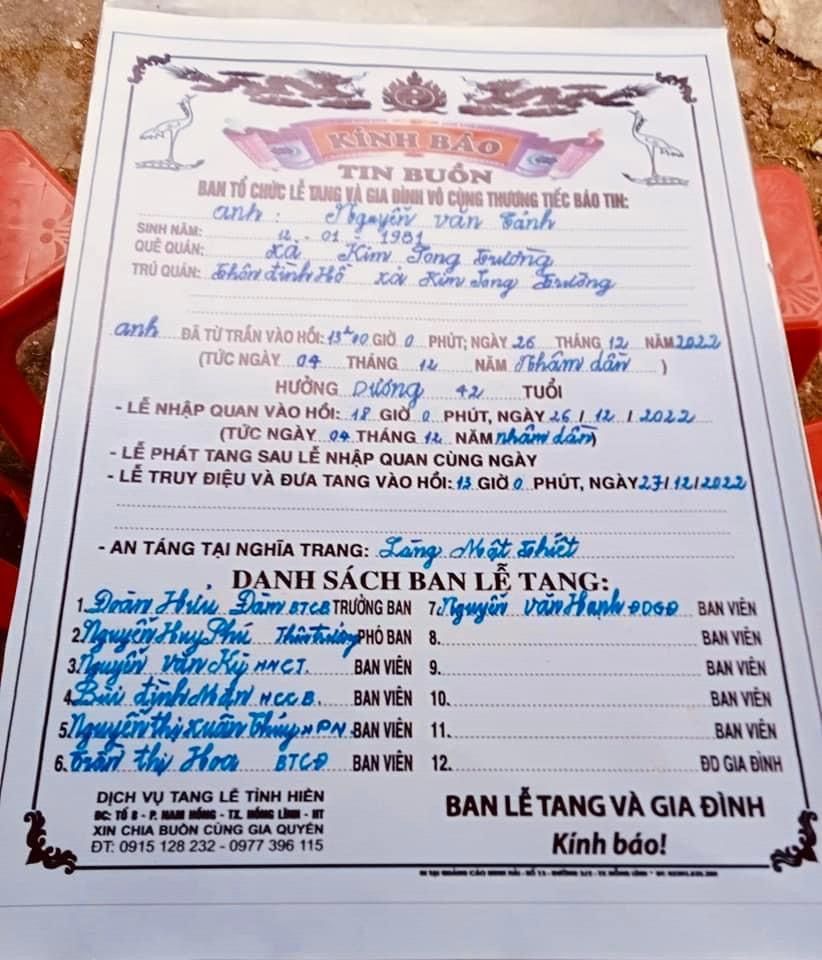 KÍNH BÁO
TIN BUỒN
BAN TỔ CHỨC LỄ TANG VÀ GIA ĐÌNH VÔ CÙNG THƯƠNG TIẾC BÁO TIN:
anh: Nguyễn Văn Cảnh
SINH NĂM: 12 - 01 - 1981
QUÊ QUÁN: xã Kim Song Trường
TRÚ QUÁN: Thôn Đình Hồ xã Kim Song Trường
anh ĐÃ TỪ TRẦN VÀO HỒI: GIỜ 0 PHÚT; NGÀY 26 THÁNG 12 NĂM 2022
(TỨC NGÀY 04 THÁNG 12 NĂM Nhâm dần)
HƯỞNG Dương 42 TUỔI
- LỄ NHẬP QUAN VÀO HỒI: 18 GIỜ 0 PHÚT, NGÀY 26 / 12 / 2022
(TỨC NGÀY 04 THÁNG 12 NĂM nhâm dần)
- LỄ PHÁT TANG SAU LỄ NHẬP QUAN CÙNG NGÀY
- LỄ TRUY ĐIỆU VÀ ĐƯA TANG VÀO HỒI: 13 GIỜ 0 PHÚT, NGÀY 27/12/2022
- AN TÁNG TẠI NGHĨA TRANG: Làng Mật Thiết
DANH SÁCH BAN LỄ TANG:
1. Đoàn Hữu Đàm BTCB TRƯỞNG BAN 7. Nguyễn Văn Hạnh ĐDGĐ BAN VIÊN
2. Nguyễn Huy Phú Thôn trưởng PHÓ BAN 8. BAN VIÊN
3. Nguyễn Văn Kỷ HNCT. BAN VIÊN 9. BAN VIÊN
4. Bùi Đình Mận HCCB. BAN VIÊN 10. BAN VIÊN
5. Nguyễn Thị Xuân Thúy HPN. BAN VIÊN 11. BAN VIÊN
6. Trần Thị Hoa BTCĐ BAN VIÊN 12. ĐD GIA ĐÌNH
DỊCH VỤ TANG LỄ TÌNH HIÊN
ĐC: TỔ 8 - P. NAM HỒNG - TX. HỒNG LĨNH - HT
XIN CHIA BUỒN CÙNG GIA QUYẾN
ĐT: 0915 128 232 - 0977 396 115
BAN LỄ TANG VÀ GIA ĐÌNH
Kính báo!